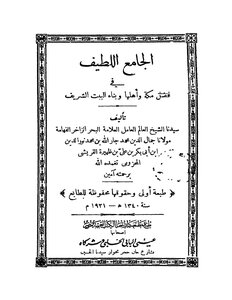 الجامع اللطيف
في
فضل مكة وأهلها وبناء البيت الشريف
تأليف
سيدنا الشيخ العالم العامل العلامة البحر الزاخر الفهامة
مولانا جمال الدين محمد جار الله بن محمد نور الدين
ابن أبي بكر بن علي بن ظهيرة القرشي
المخزومي تغمده الله
برحمته آمين
﴿ طبعة أولى وحقوقها محفوظة للطابع ﴾
سنة ١٣٤٠ هـ – ١٩٢١ م
عيسى البابي الحلبي وشركاه